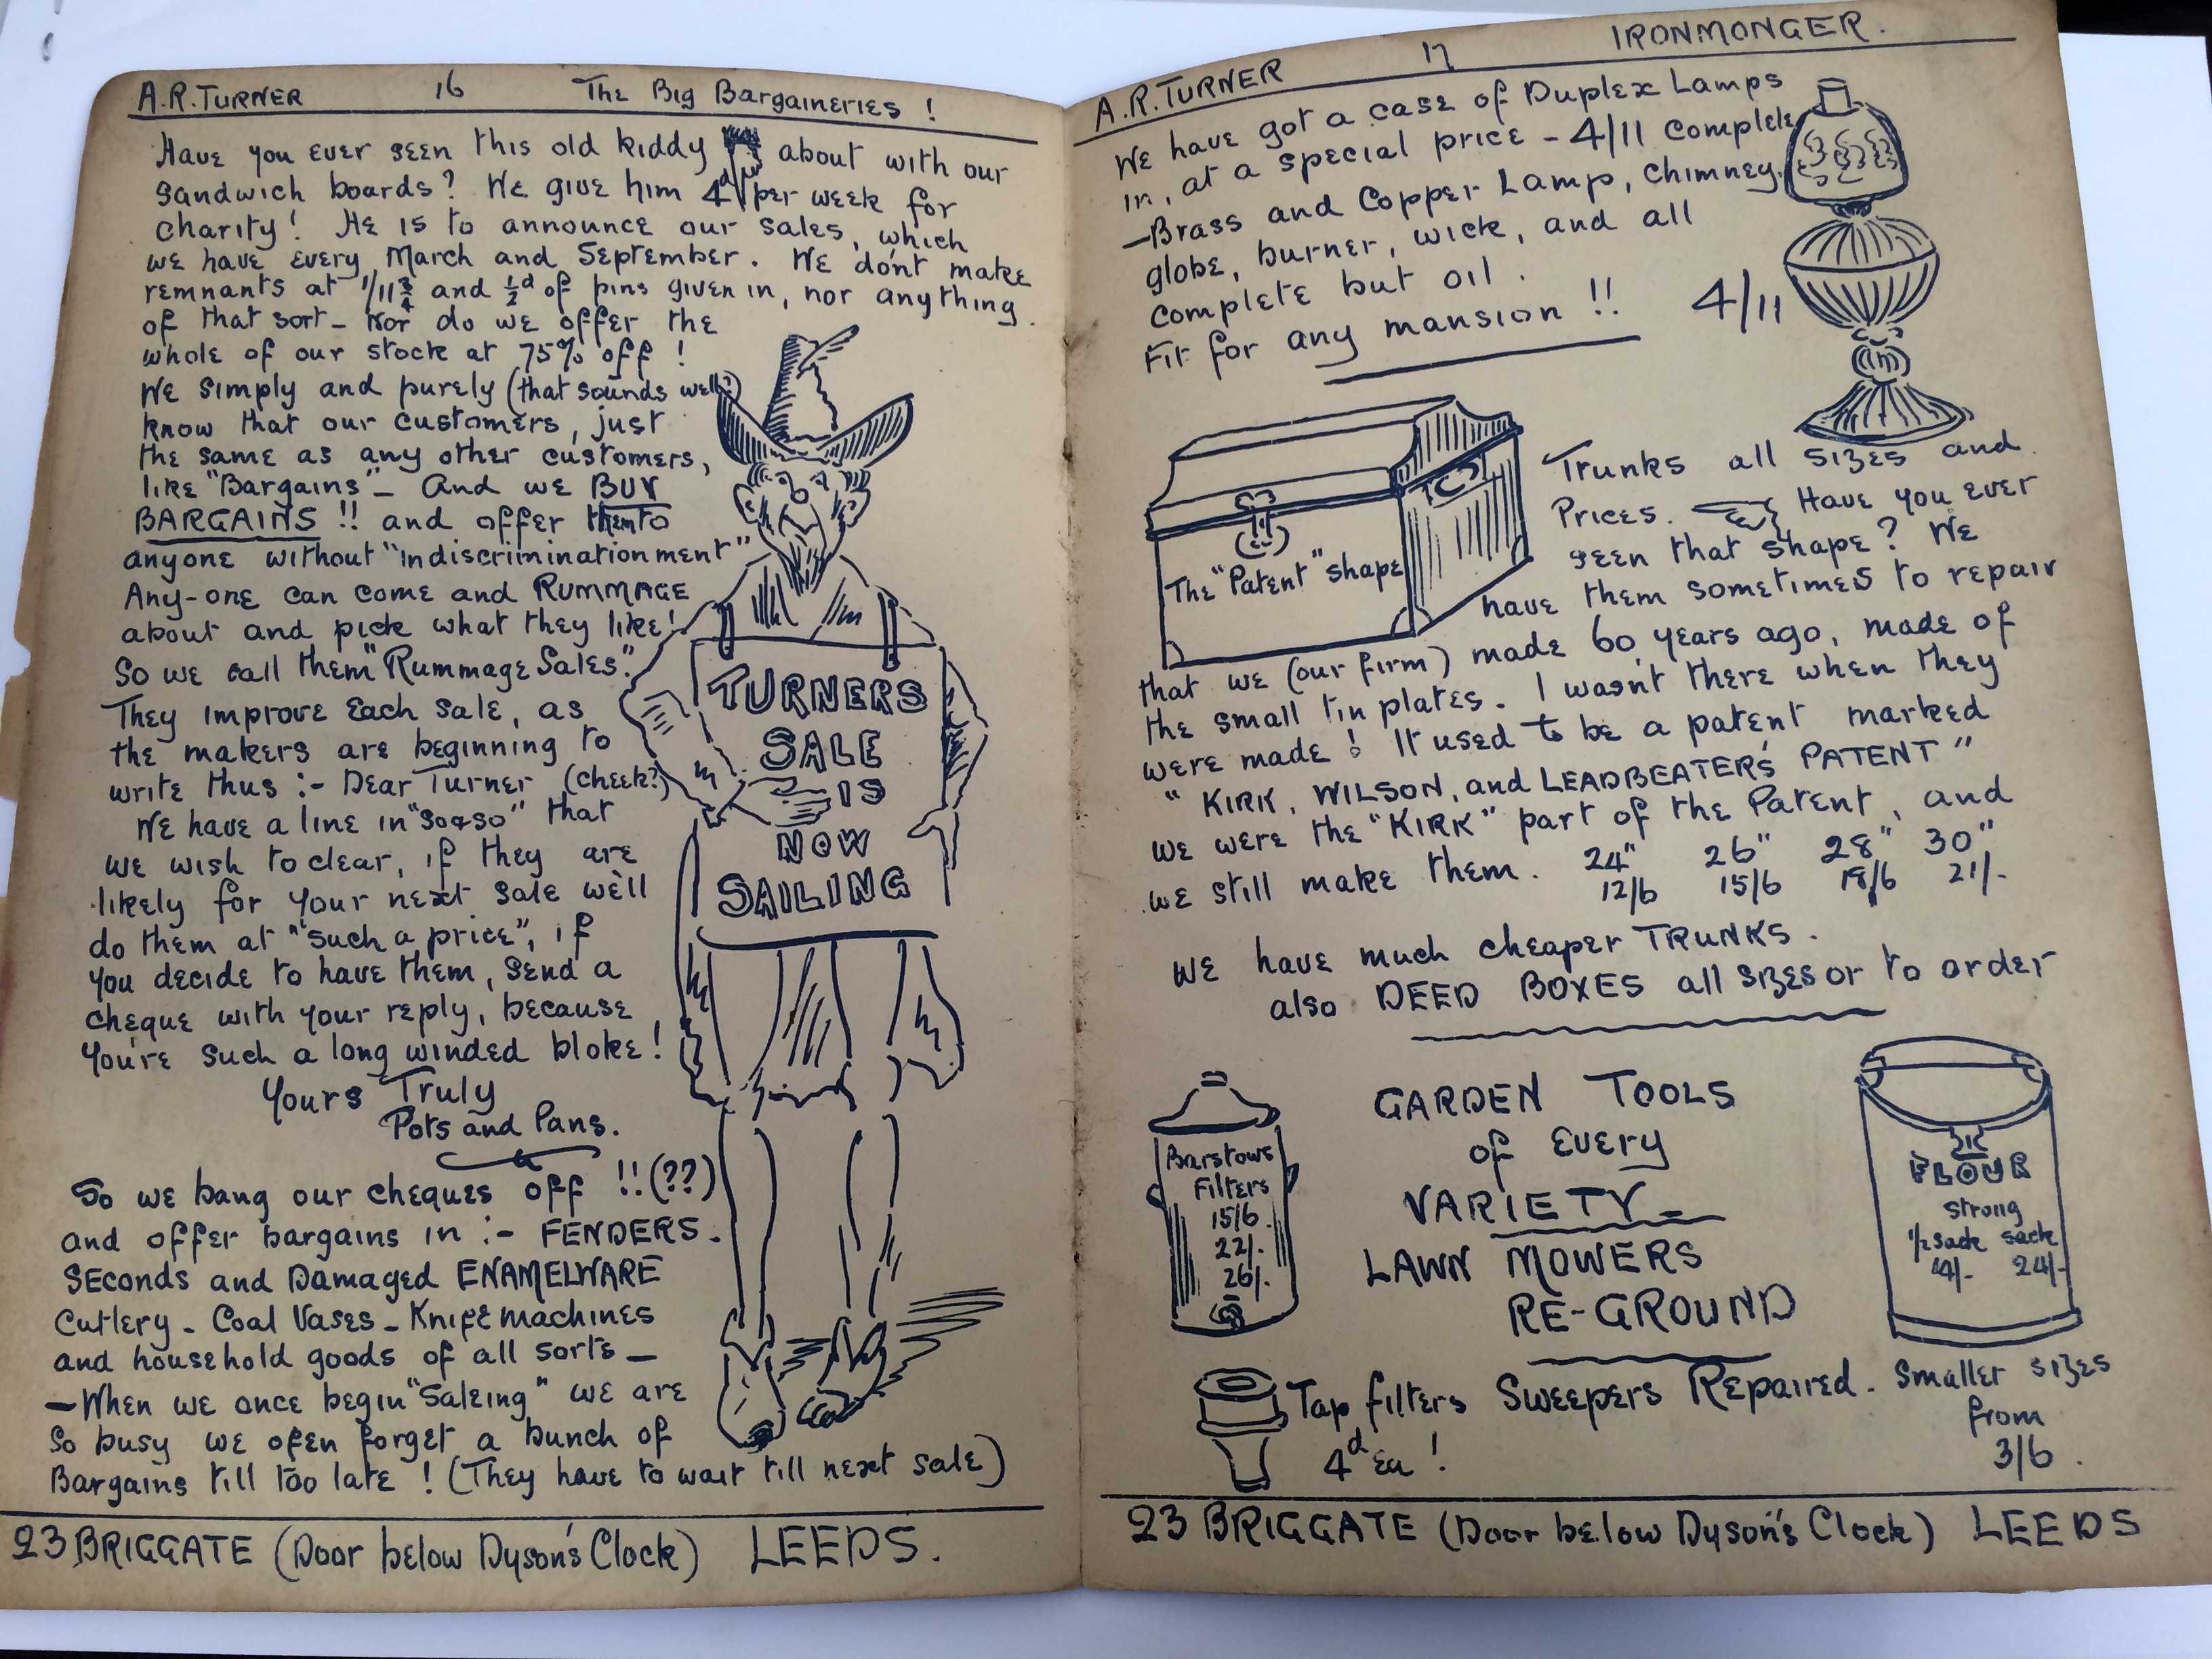 A.R. TURNER 16 The Big Bargaineries !
Have you ever seen this old kiddy about with our
sandwich boards? We give him 4d per week for
charity! He is to announce our sales, which
we have every March and September. We dont make
remnants at 1/11¾ and ½d of pins given in, nor anything
of that sort - Nor do we offer the
whole of our stock at 75% off !
We simply and purely (that sounds well?)
know that our customers, just
the same as any other customers,
like "Bargains" - And we BUY
BARGAINS !! and offer them to
anyone without "indiscriminationment"
Any-one can come and RUMMAGE
about and pick what they like!
So we call them "Rummage Sales".
They improve Each sale, as
the makers are beginning to
write thus :- Dear Turner (cheek?)
We have a line in "so & so" that
we wish to clear, if they are
likely for your next sale we'll
do them at "such a price", if
you decide to have them, send a
cheque with your reply, because
You're such a long winded bloke!
Yours Truly
Pots and Pans.
So we bang our cheques off !! (??)
and offer bargains in :- FENDERS.
SEconds and Damaged ENAMELWARE
Cutlery - Coal Vases - Knife machines
and household goods of all sorts -
- When we once begin "Saleing" we are
So busy we ofen forget a bunch of
Bargains till too late ! (They have to wait till next sale)
TURNERS
SALE
IS
NOW
SAILING
23 BRIGGATE (Door below Dyson's Clock) LEEDS.
A.R. TURNER 17 IRONMONGER.
We have got a case of Duplex Lamps
in, at a special price - 4/11 complete
- Brass and Copper Lamp, chimney,
globe, burner, wick, and all
complete but oil.
Fit for any mansion !!
4/11
The "Patent" shape
Trunks all sizes and
Prices. Have you ever
seen that shape? We
have them sometimes to repair
that we (our firm) made 60 years ago, made of
the small tin plates. I wasn't there when they
were made! It used to be a patent marked
" KIRK, WILSON, and LEADBEATER'S PATENT "
we were the "KIRK" part of the Patent, and
we still make them. 24" 26" 28" 30"
12/6 15/6 18/6 21/-
We have much cheaper TRUNKS.
also DEED BOXES all sizes or to order
Barstows
Filters
15/6
22/-
26/-
GARDEN TOOLS
of EVERY
VARIETY -
LAWN MOWERS
RE-GROUND
FLOUR
strong
½ sack sack
24/-
Tap filters
4d Ea !
Sweepers Repaired.
Smaller sizes
from
3/6.
23 BRIGGATE (Door below Dyson's Clock) LEEDS